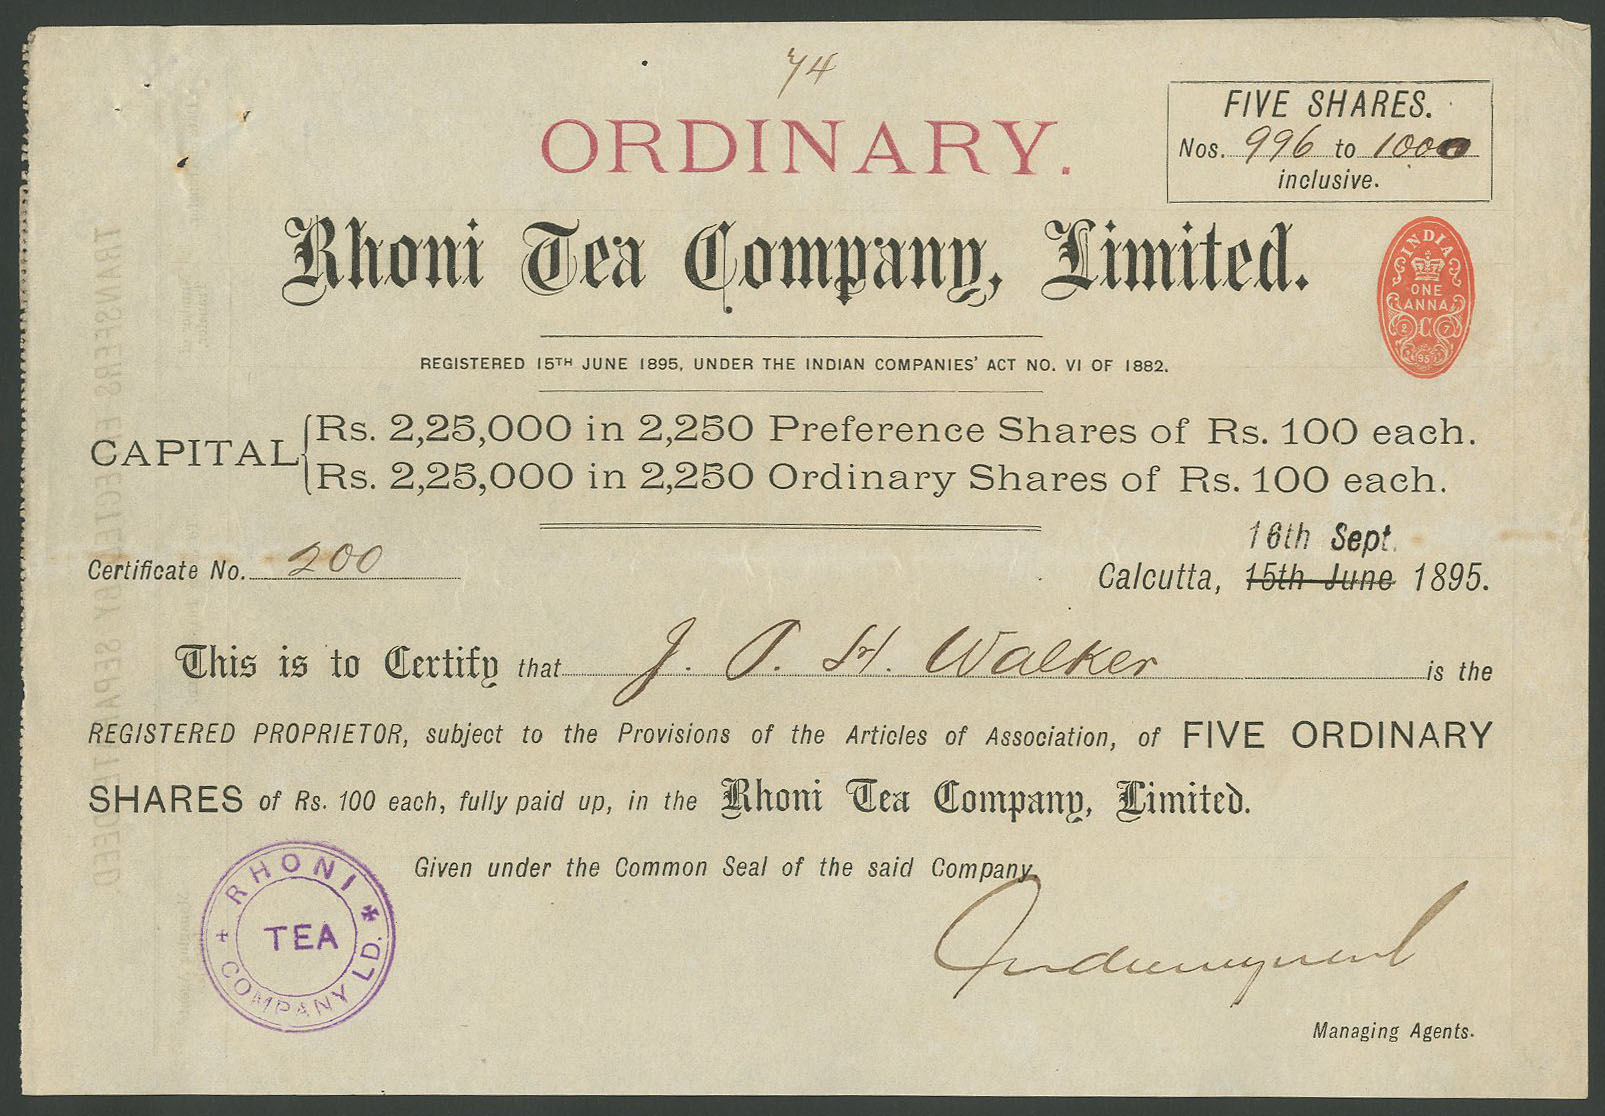 74
ORDINARY.
FIVE SHARES.
Nos. 996 to 1000
inclusive.
Rhoni Tea Company, Limited.
INDIA
ONE
ANNA
2 C 7
95
REGISTERED 15TH JUNE 1895, UNDER THE INDIAN COMPANIES' ACT NO. VI OF 1882.
CAPITAL
Rs. 2,25,000 in 2,250 Preference Shares of Rs. 100 each.
Rs. 2,25,000 in 2,250 Ordinary Shares of Rs. 100 each.
16th Sept.
Certificate No. 200
Calcutta, 15th June 1895.
This is to Certify that J. P. H. Walker is the
REGISTERED PROPRIETOR, subject to the Provisions of the Articles of Association, of FIVE ORDINARY
SHARES of Rs. 100 each, fully paid up, in the Rhoni Tea Company, Limited.
Given under the Common Seal of the said Company.
RHONI
TEA
COMPANY LD.
Managing Agents.
TRANSFERS EFFECTED BY SEPARATE DEED.